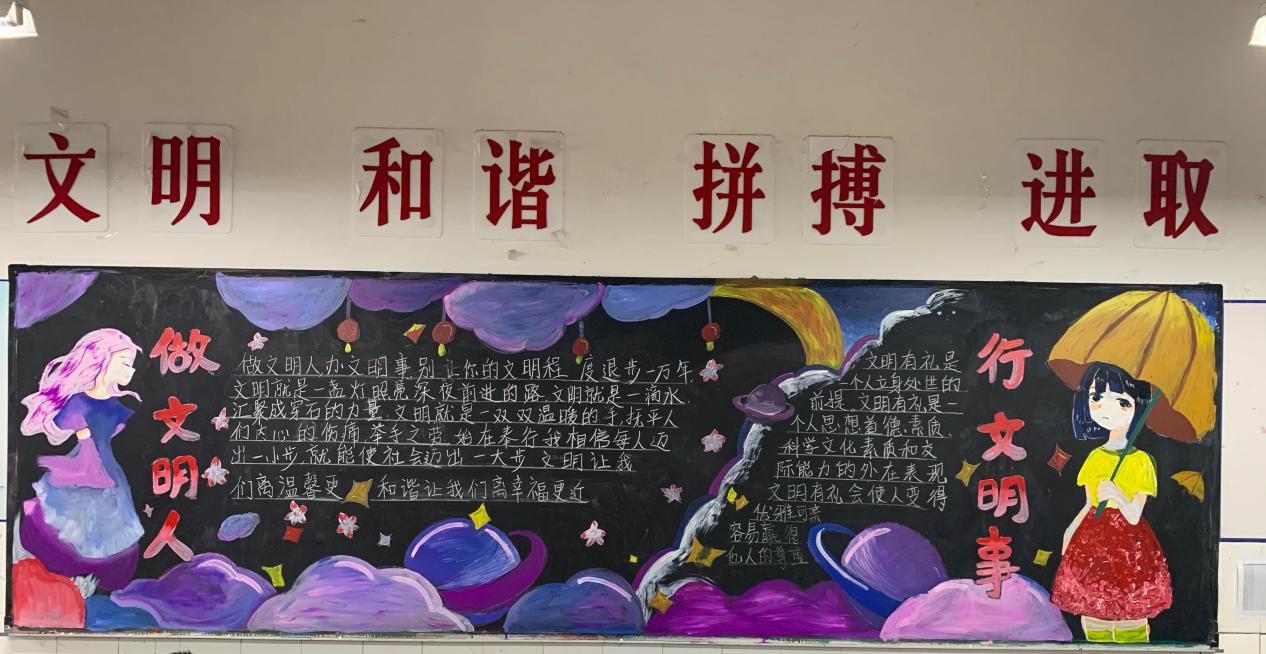 文明 和谐 拼搏 进取
做文明人
做文明人办文明事别让你的文明程度退步一万年
文明就是一盏灯照亮深夜前进的路文明就是一滴水
汇聚成宝石的力量文明就是一双双温暖的手抚平人
们内心的伤痛举手之劳始在奉行我相信每人迈
出一小步就能使社会迈出一大步文明让我
们离温馨更 和谐让我们离幸福更近
行文明事
文明有礼是
一个人立身处世的
前提。文明有礼是一
个人思想道德素质
科学文化素质和交
际能力的外在表现
文明有礼会使人变得
优雅可亲
容易赢得
他人的尊重